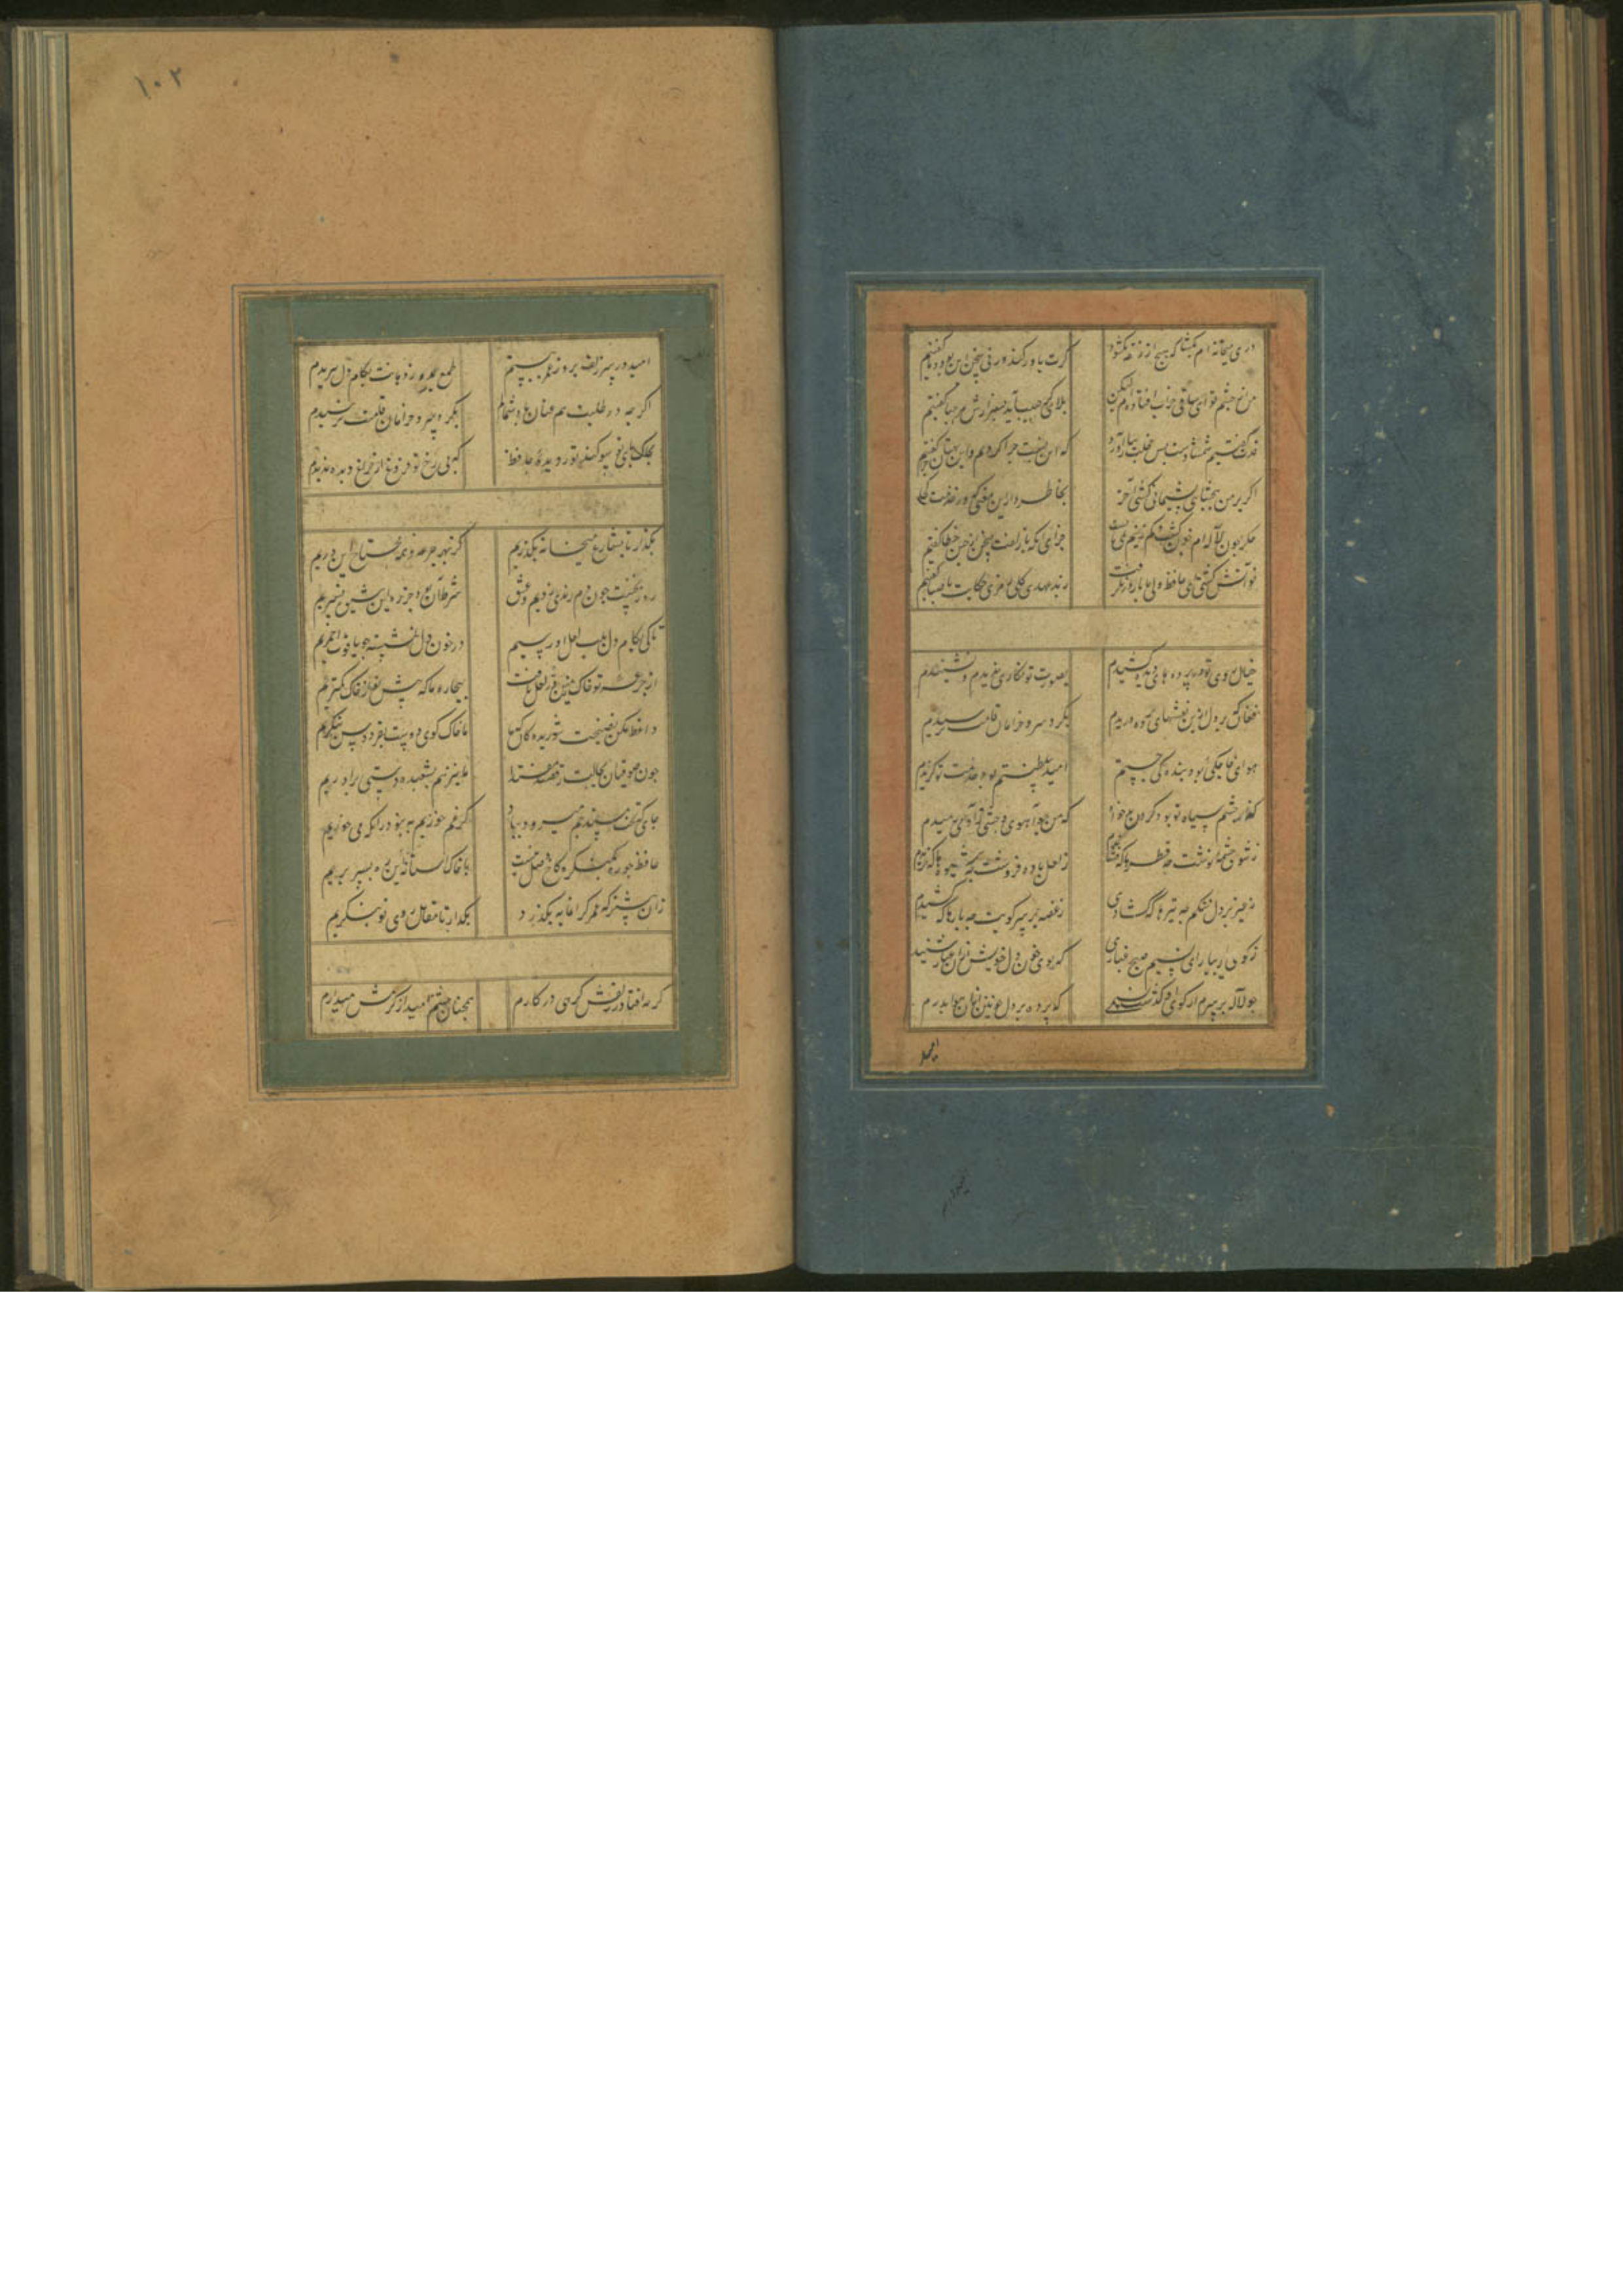 در میخانه ام بگشا که هیچ از خانقه نگشود گرت باور کند ور نی سخن این بود و ما گفتیم
من از چشم تو ای ساقی خراب افتاده ام لیکن بلایی کز حبیب آید هزارش مرحبا گفتیم
قدت گفتیم شمشادست بس خجلت ببار آورد که این نسبت چرا کردیم و این بهتان چرا گفتیم
اگر بر من نبخشایی پشیمانی کشی آخر بخاطر دار این معنی که در خدمت کجا
جگر چون نافه ام خون گشت کم زینم نمی باید جزای آنکه با زلفت سخن از چین خطا گفتیم
تو آتش گشتی ای حافظ ولی با یار در نگرفت ز بدعهدی گل حکایت با صبا گفتیم
خیال روی تو در پرده های دیده کشیدم بصورت تو نگاری ندیدم و نشنیدم
بگرد سرو خرامان قامتت نرسیدم
هوای خواجگی بود بندگی جستم امید سلطنتم بود خدمت تو گزیدم
گناه چشم سیاه تو بود گردن دلخواه که من چو آهوی وحشی ز آدمی برمیدم
ز شوق چشمه نوشت چه قطره ها که فشاندم ز لعل باده فروشت چه عشوه ها که خریدم
ز غمزه بر دل تنگم چه تیرها که گشادی ز غصه بر سر کویت چه بارها که کشیدم
ز کوی یار بیار ای نسیم صبح غباری که بوی خون دل خویش از آن غبار شنیدم
چو لاله بر سرم از کوی او گذشت نسیمی که پرده بر دل خونین ببوی او بدریدم
امید
۱۰۲
امید در سر زلفت بروز عمر ببستم طمع بدور دهانت ز کام دل ببریدم
اگر چه در طلبت هم عنان باد شمالم بگرد سرو خرامان قامتت نرسیدم
بخاک پای تو سوگند و نور دیده حافظ که بی رخ تو فروغ از چراغ دیده ندیدم
بگذار تا بشارع میخانه بگذریم کز بهر جرعه همه محتاج این دریم
روز نخست چون دم رندی زدیم و عشق شرط آن بود که جز ره این شیوه نسپریم
تا کی بکام دل ز لب لعل او رسیم در خون دل نشسته چو یاقوت احمریم
از جرعه تو خاک زمین قدر لعل یافت بیچاره ما که پیش تو از خاک کمتریم
واعظ مکن نصیحت شوریدگان که ما با خاک کوی دوست بفردوس ننگریم
چون صوفیان بحالت رقصند مقتدا ما نیز هم بشعبده دستی برآوریم
جایی که تخت و مسند جم میرود بباد گر غم خوریم به بود آنکه می خوریم
حافظ چو ره بکنگره کاخ وصل نیست با خاک آستانه این در بسر بریم
زان پیشتر که عمر گرانمایه بگذرد بگذار تا مقابل روی تو بنگریم
گر چه افتاد ز زلفش گرهی در کارم همچنان چشم امید از کرمش میدارم